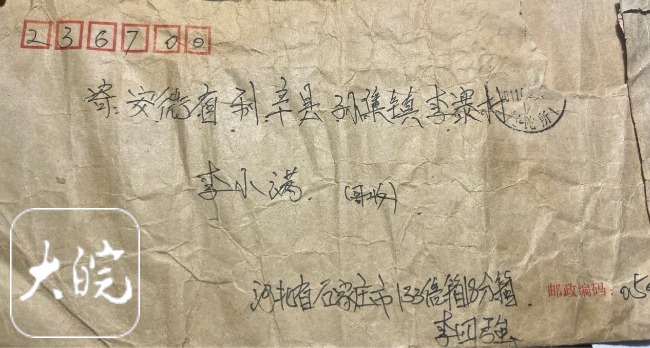 236700
寄 安徽省利辛县孙集镇李寨村
李小满 (哥收)
大皖
河北省石家庄市133信箱18分箱
邮政编码: 050
李四强